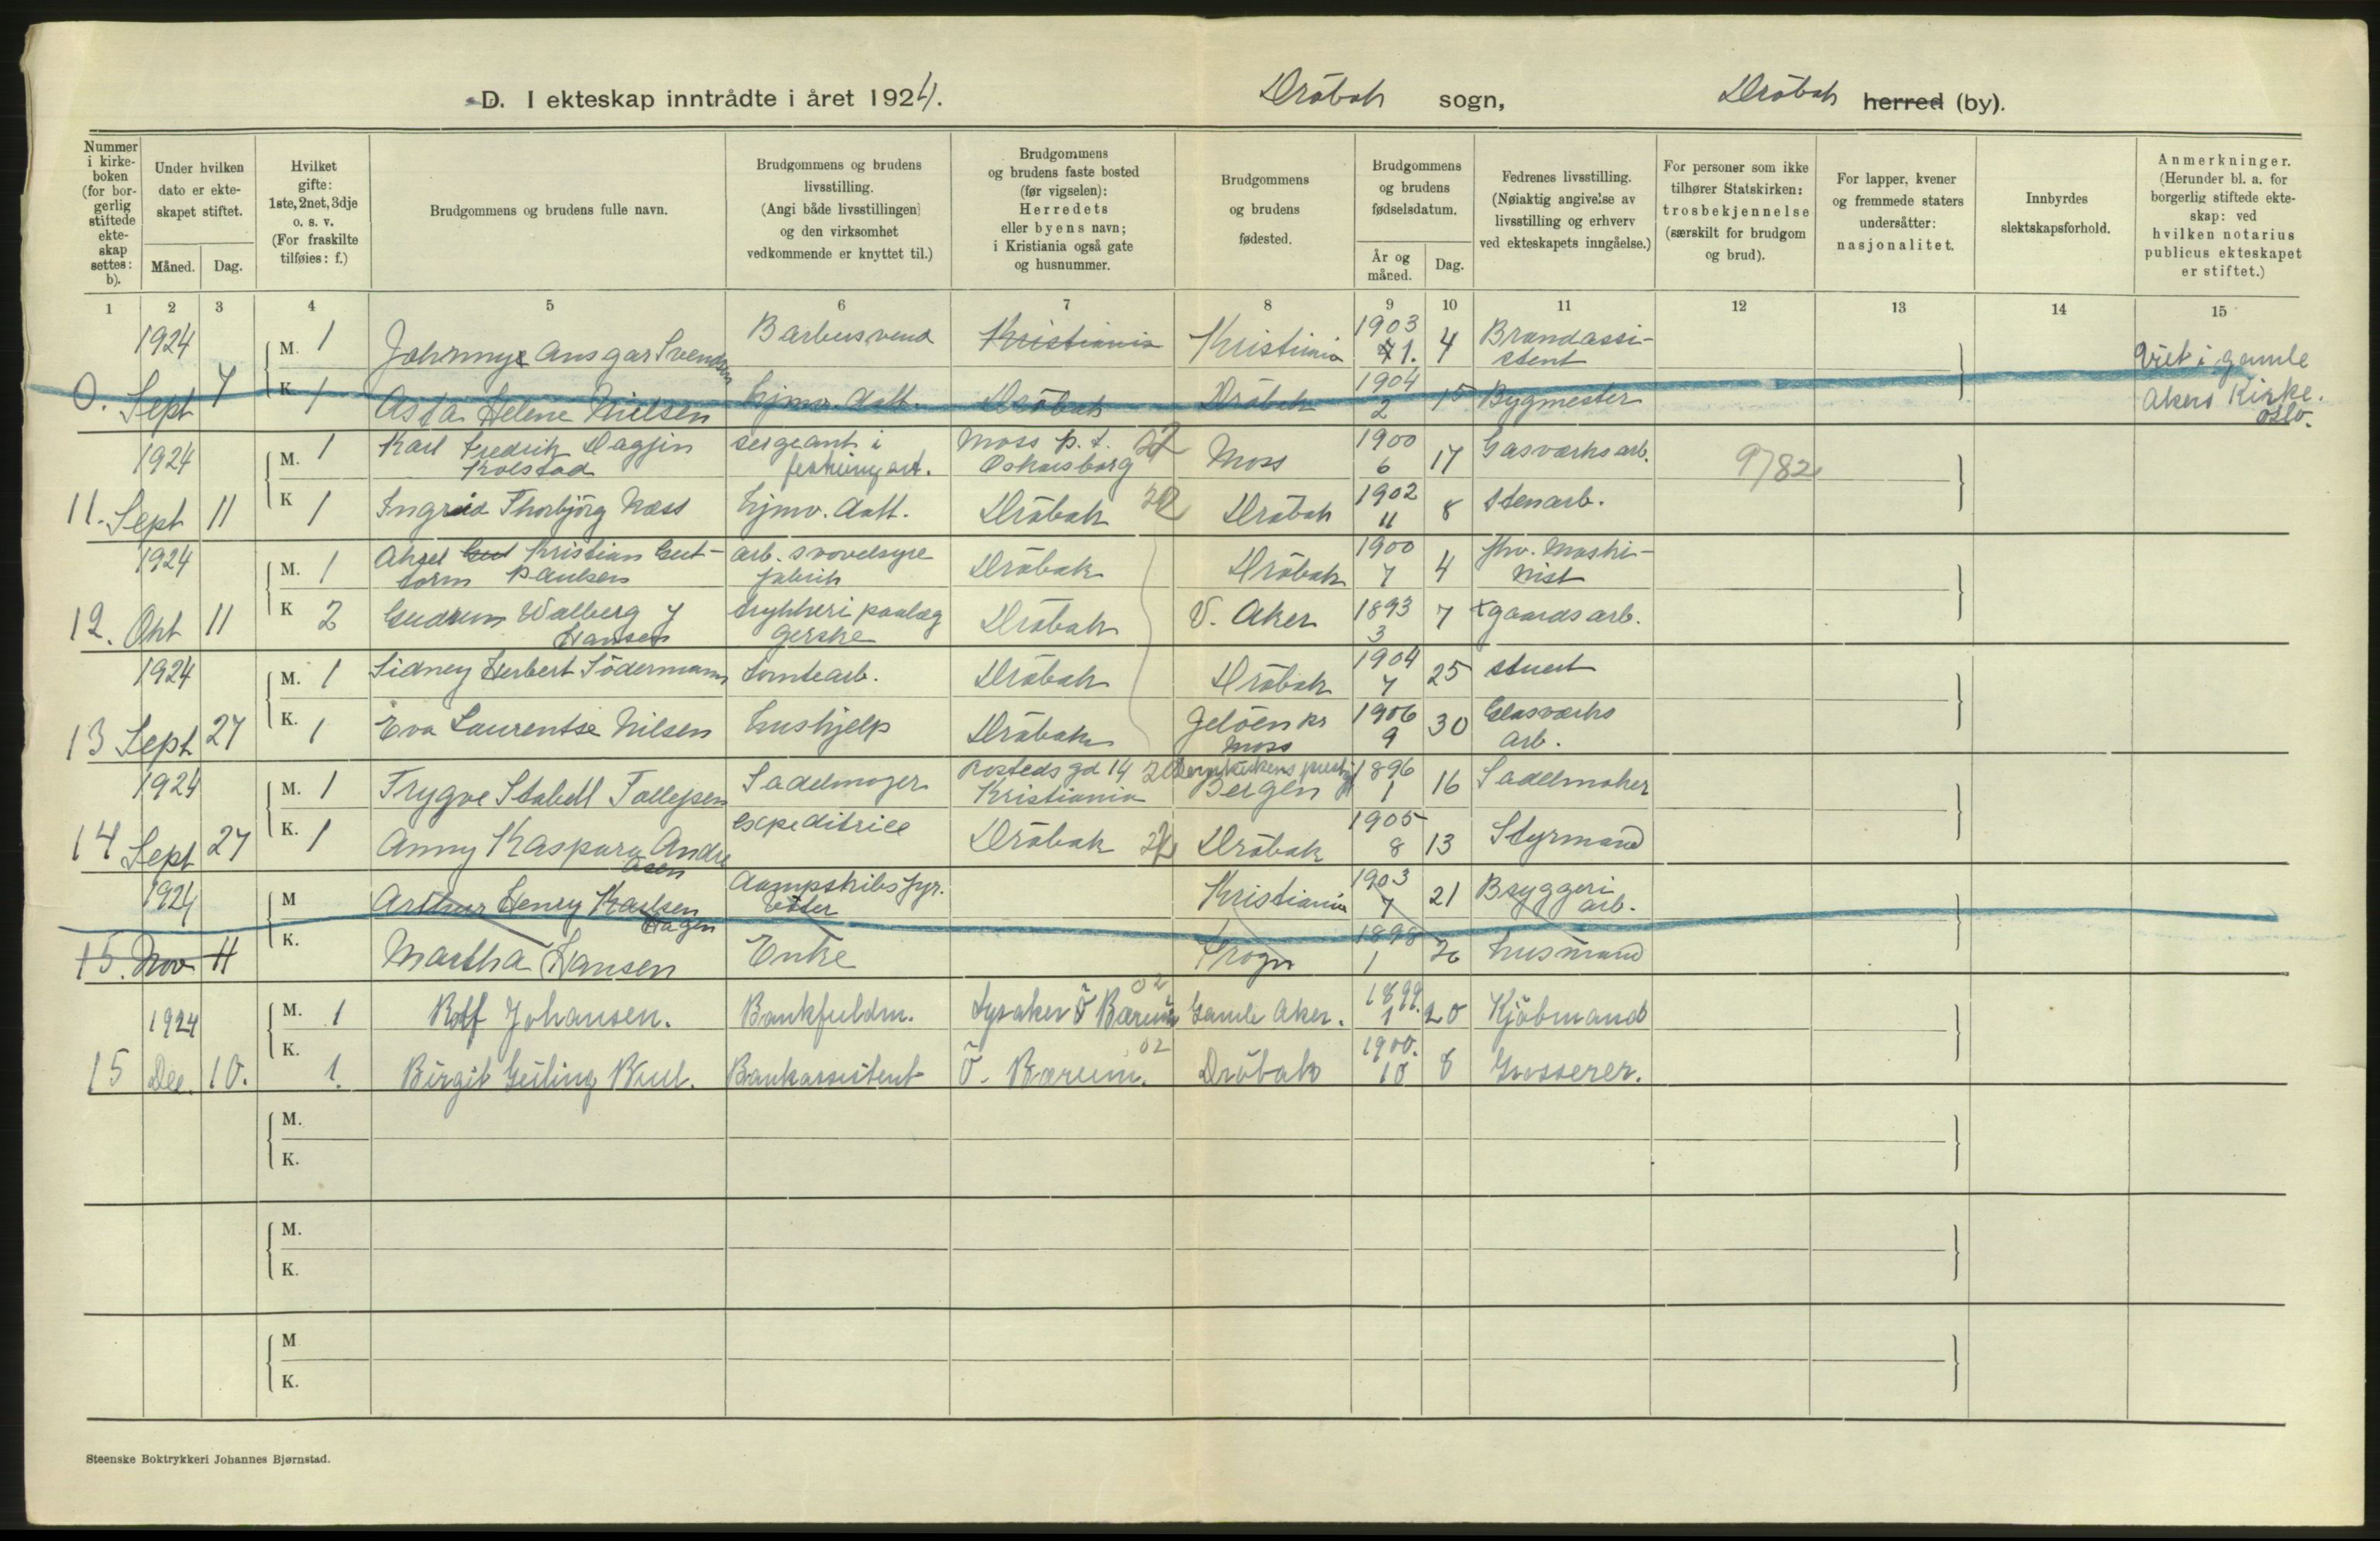 D. I ekteskap inntrådte i året 1924.
Dröbak sogn,
Dröbak herred (by).
Nummer i kirkeboken (for borgerlig stiftede ekteskap settes: b).
Under hvilken dato er ekteskapet stiftet.
Måned. Dag.
Hvilket gifte: 1ste, 2net, 3dje o. s. v. (For fraskilte tilføies: f.)
Brudgommens og brudens fulle navn.
Brudgommens og brudens livsstilling. (Angi både livsstillingen og den virksomhet vedkommende er knyttet til.)
Brudgommens og brudens faste bosted (før vigselen): Herredets eller byens navn; i Kristiania også gate og husnummer.
Brudgommens og brudens fødested.
Brudgommens og brudens fødselsdatum.
År og måned. Dag.
Fedrenes livsstilling. (Nøiaktig angivelse av livsstilling og erhverv ved ekteskapets inngåelse.)
For personer som ikke tilhører Statskirken: trosbekjennelse (særskilt for brudgom og brud).
For lapper, kvener og fremmede staters undersåtter: nasjonalitet.
Innbyrdes slektskapsforhold.
Anmerkninger. (Herunder bl. a. for borgerlig stiftede ekteskap: ved hvilken notarius publicus ekteskapet er stiftet.)
1 2 3 4 5 6 7 8 9 10 11 12 13 14 15
1924 M. 1 Johnny Ansgar Svendsen Barbersvend Kristiania Kristiania 1903 1. 4 Brandassistent
0. Sept 7 K 1 Asta Helene Nielsen hjmv. datt. Dröbak Dröbak 1904 2 15 Bygmester
Viet i gamle
Akers Kirke.
Oslo.
1924 M. 1 Karl Fredrik Dagfin Kolstad sergeant i festningsart. Moss p. t. Oskarsborg Moss 1900 6 17 Gasværksarb. 9782
11. Sept 11 K 1 Ingrid Thorbjörg Næss hjmv. datt. Dröbak Dröbak 1902 11 8 Stenarb.
1924 M. 1 Aksel Gut Kristian Guttorm Paulsen arb. svovelsyre fabrik Dröbak Dröbak 1900 7 4 fhv. Maskinist
12. Okt 11 K 2 Gudrun Walberg Hansen trykkeri paalæggerske Dröbak V. Aker 1893 3 7 gaardsarb.
1924 M. 1 Sidney Herbert Södermann tomtearb. Dröbak Dröbak 1904 7 25 stuert
13 Sept 27 K. 1 Eva Laurentse Nilsen hushjelp Dröbak Jelöen pr Moss 1906 9 30 Glasværks arb.
1924 M. 1 Trygve Stabell Tollefsen Sadelmager Rosteds gd 14 Kristiania Domkirkens prestgj Bergen 1896 1 16 Sadelmaker
14 Sept 27 K. 1 Anny Kaspara Andreasen Expeditrice Dröbak Dröbak 1905 8 13 Styrmand
1924 M Arthur Henry Karlsen Hagen Dampskibsfyr. Kristiania 1903 7 21 Bryggeri arb.
15. Nov 11 K. Martha Hansen Enke Frogn 1898 1 26 husmand
1924 M. 1 Rolf Johansen. Bankfuldm. Lysaker Ö Bærum 02 Gamle Aker. 1899. 1 20 Kjöbmand
15 Des. 10. K. 1. Birgit Geiling Buul. Bankassistent Ö. Bærum. 02 Dröbak 1900. 10 8 Grosserer.
M.
K.
M.
K.
M
K.
Steenske Boktrykkeri Johannes Bjørnstad.